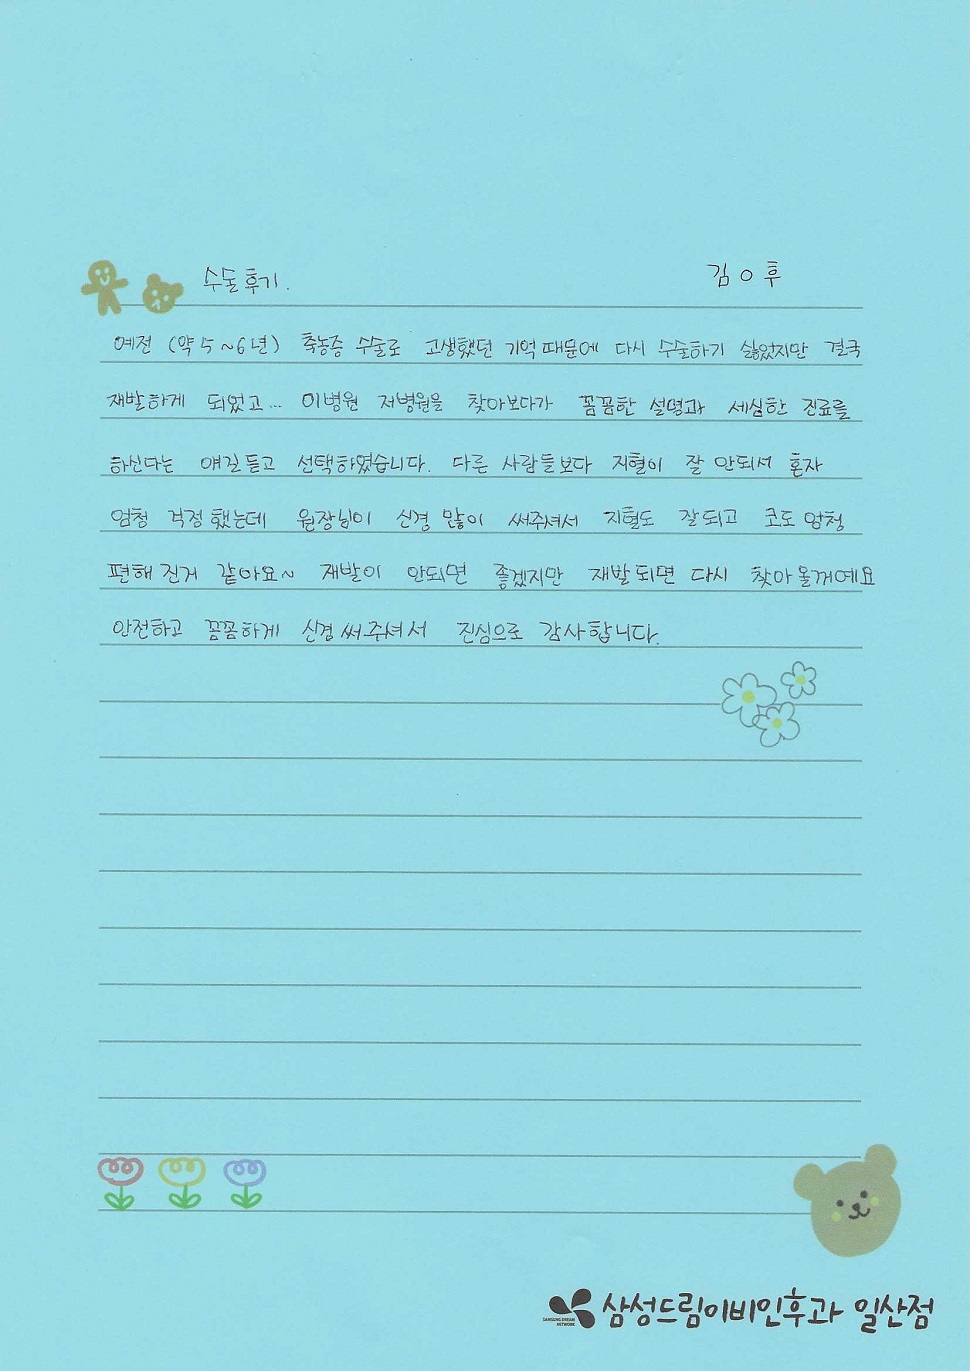 수술후기. 김ㅇ후
예전 (약 5~6년) 축농증 수술로 고생했던 기억때문에 다시 수술하기 싫었지만 결국
재발하게 되었고... 이병원 저병원을 찾아보다가 꼼꼼한 설명과 세심한 진료를
하신다는 얘길듣고 선택하였습니다. 다른 사람들보다 지혈이 잘 안되서 혼자
엄청 걱정했는데 원장님이 신경 많이 써주셔서 지혈도 잘되고 코도 엄청
편해진거 같아요~ 재발이 안되면 좋겠지만 재발되면 다시 찾아올꺼예요
안전하고 꼼꼼하게 신경써주셔서 진심으로 감사합니다.
SAMSUNG DREAM
NETWORK
삼성드림이비인후과 일산점